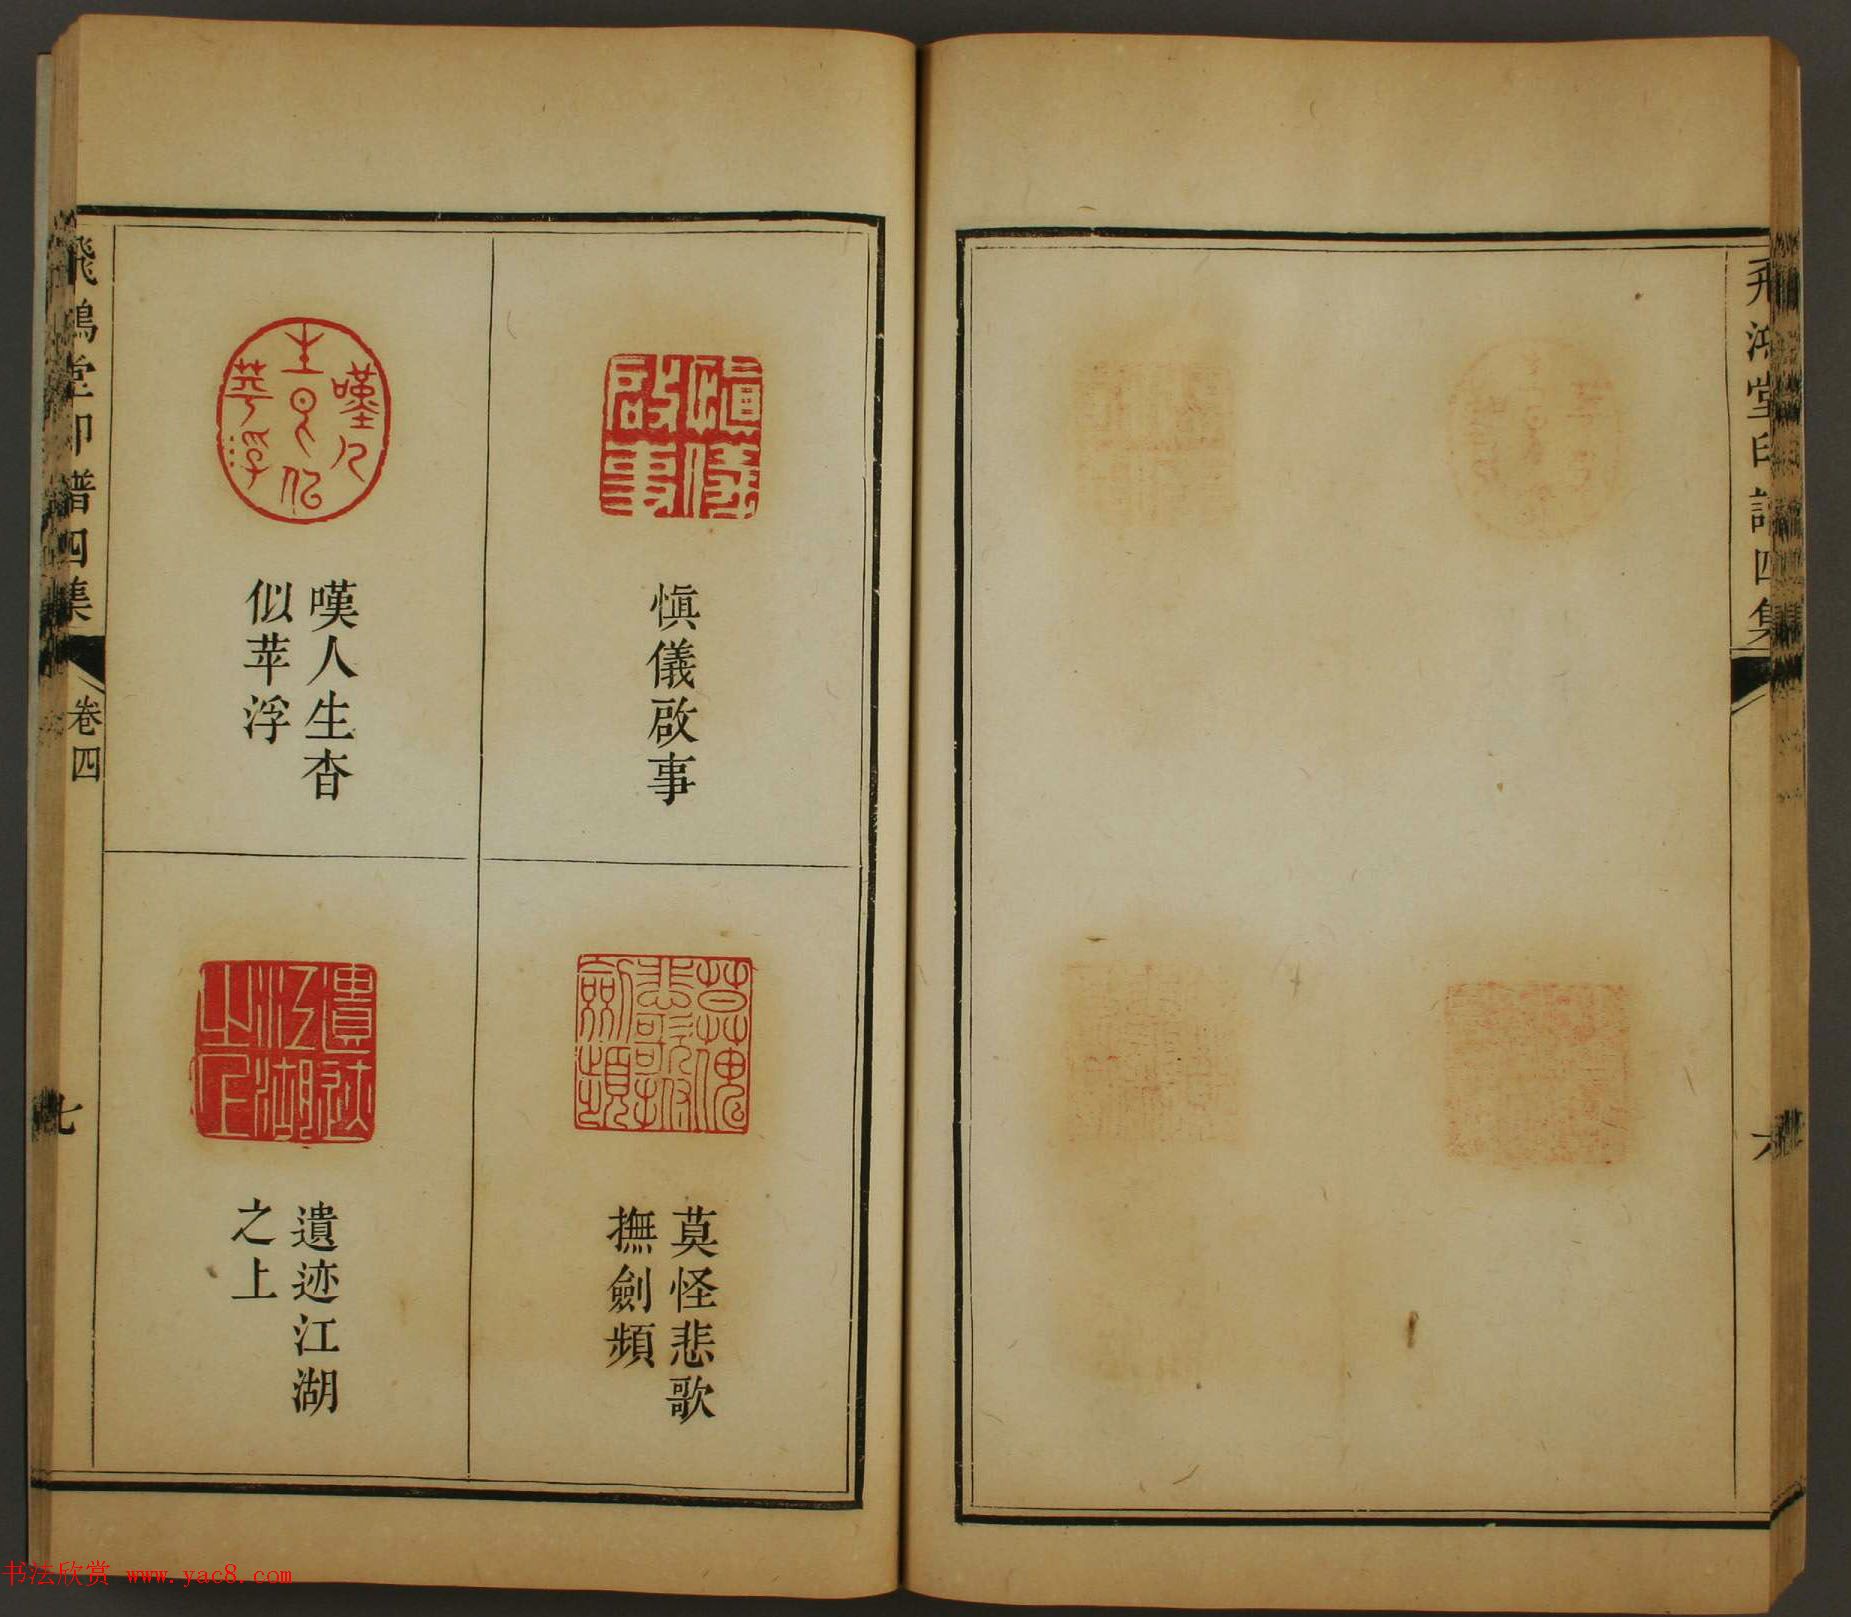 飛鴻堂印譜四集
卷四
七
慎儀啟事
嘆人生杳
似苹浮
莫怪悲歌
撫劍頻
遺迹江湖
之上
書法欣赏 www.yac8.com